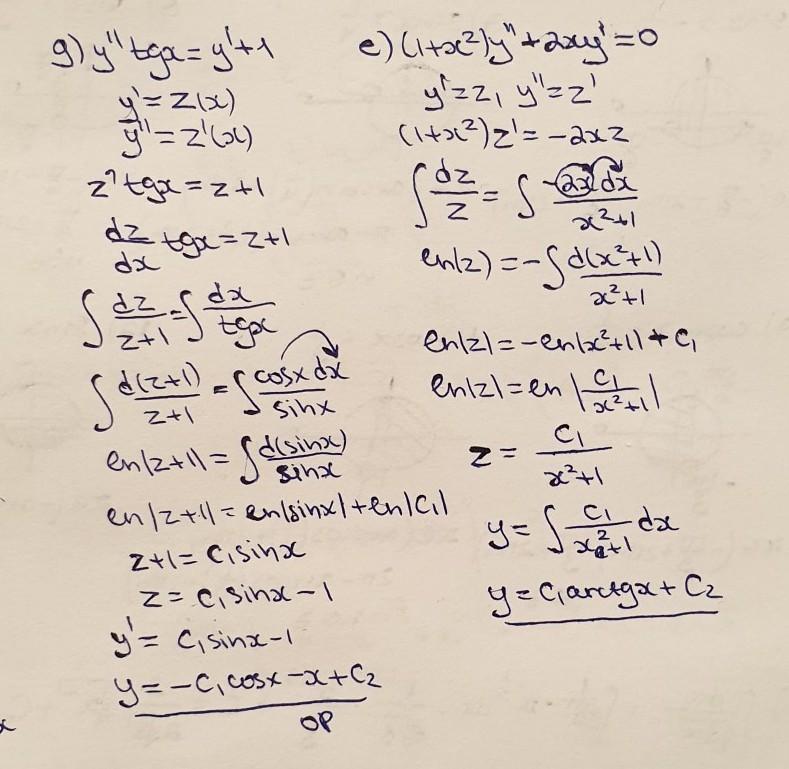 g) y'' tgx = y' + 1
y' = z(x)
y'' = z'(x)
z' tgx = z + 1
dz/dx tgx = z + 1
∫ dz/(z+1) = ∫ dx/tgx
∫ d(z+1)/(z+1) = ∫ cosx dx/sinx
ln|z+1| = ∫ d(sinx)/sinx
ln|z+1| = ln|sinx| + ln|C₁|
z+1 = C₁sinx
z = C₁sinx - 1
y' = C₁sinx - 1
y = -C₁cosx - x + C₂
OP
e) (1+x²)y'' + 2xy' = 0
y' = z, y'' = z'
(1+x²)z' = -2xz
∫ dz/z = ∫ -2x dx/(x²+1)
ln|z| = -∫ d(x²+1)/(x²+1)
ln|z| = -ln|x²+1| + C₁
ln|z| = ln |C₁/(x²+1)|
z = C₁/(x²+1)
y = ∫ C₁/(x²+1) dx
y = C₁arctgx + C₂
x